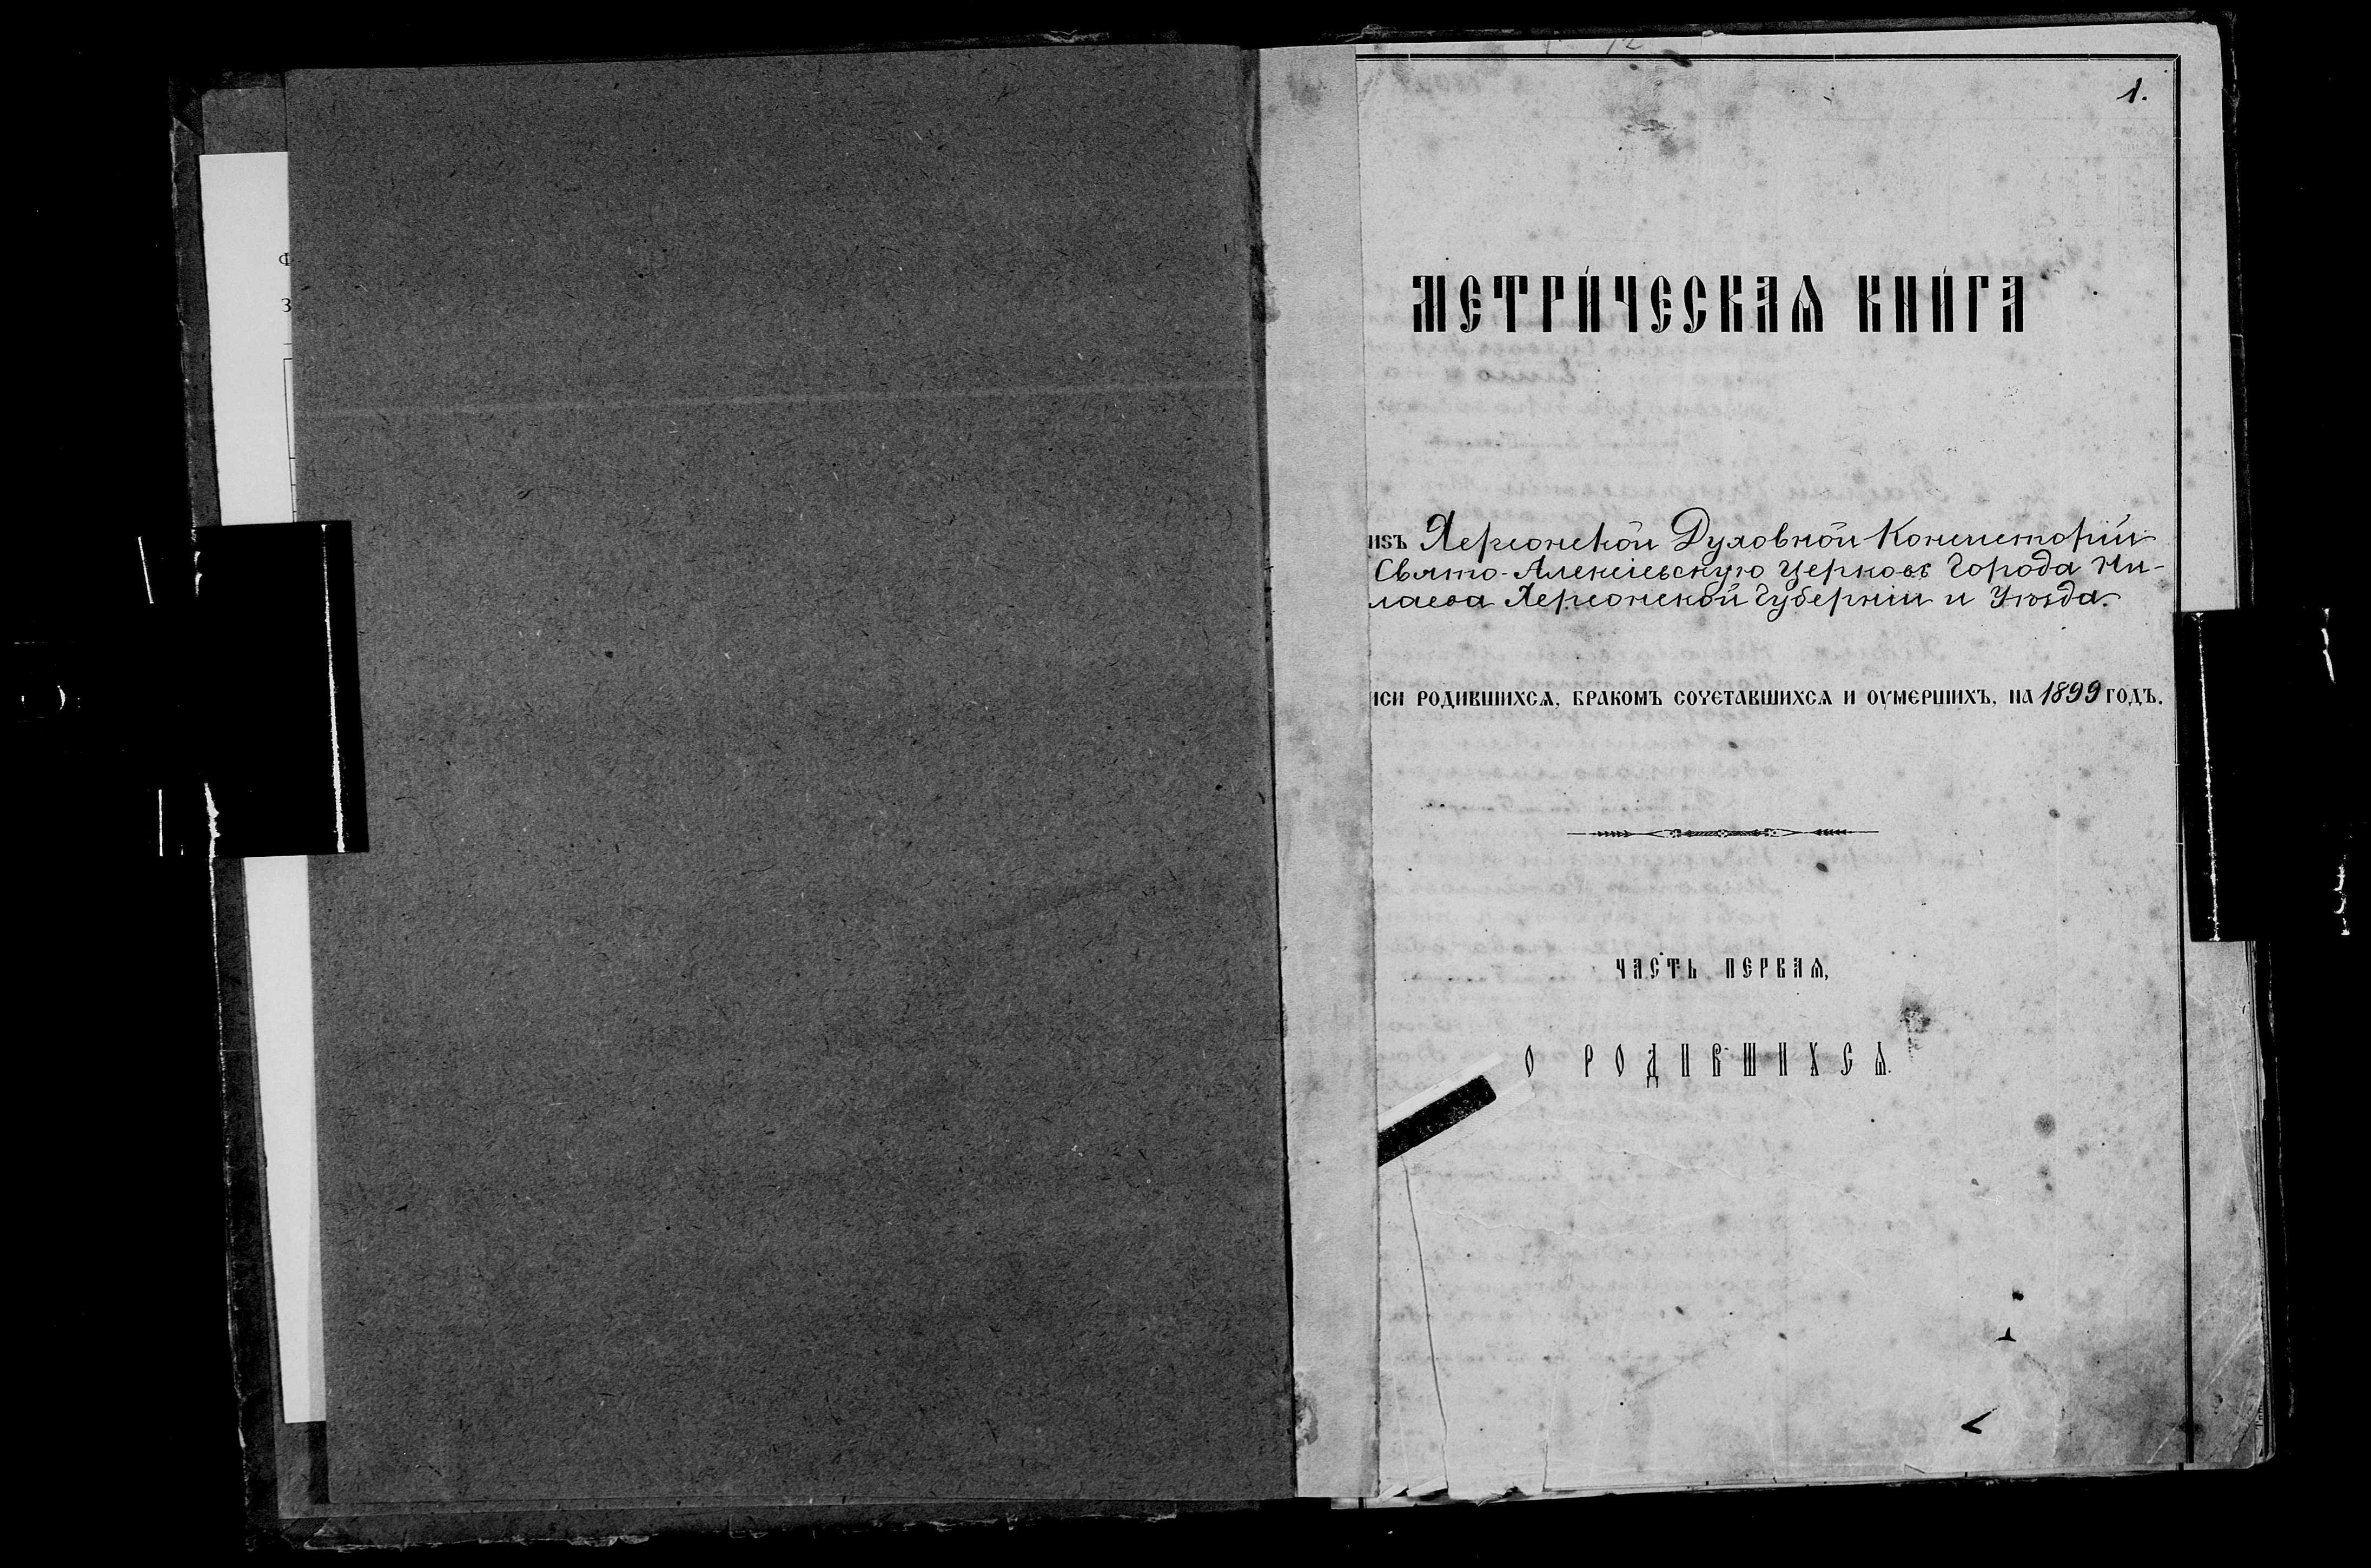 Ф
З
1.
МЕТРИ́ЧЕСКАѦ КНИ́ГА
изъ Херсонской Духовной Консисторіи
Свято-Алексіевскую Церковь Города Ни-
лаева Херсонской Губерніи и Уѣзда.
иси родившихсѧ, бракомъ сочетавшихсѧ и оумершихъ, на 1899 годъ.
ЧАСТЬ ПЕРВАѦ,
О РОДИВШИХСѦ.